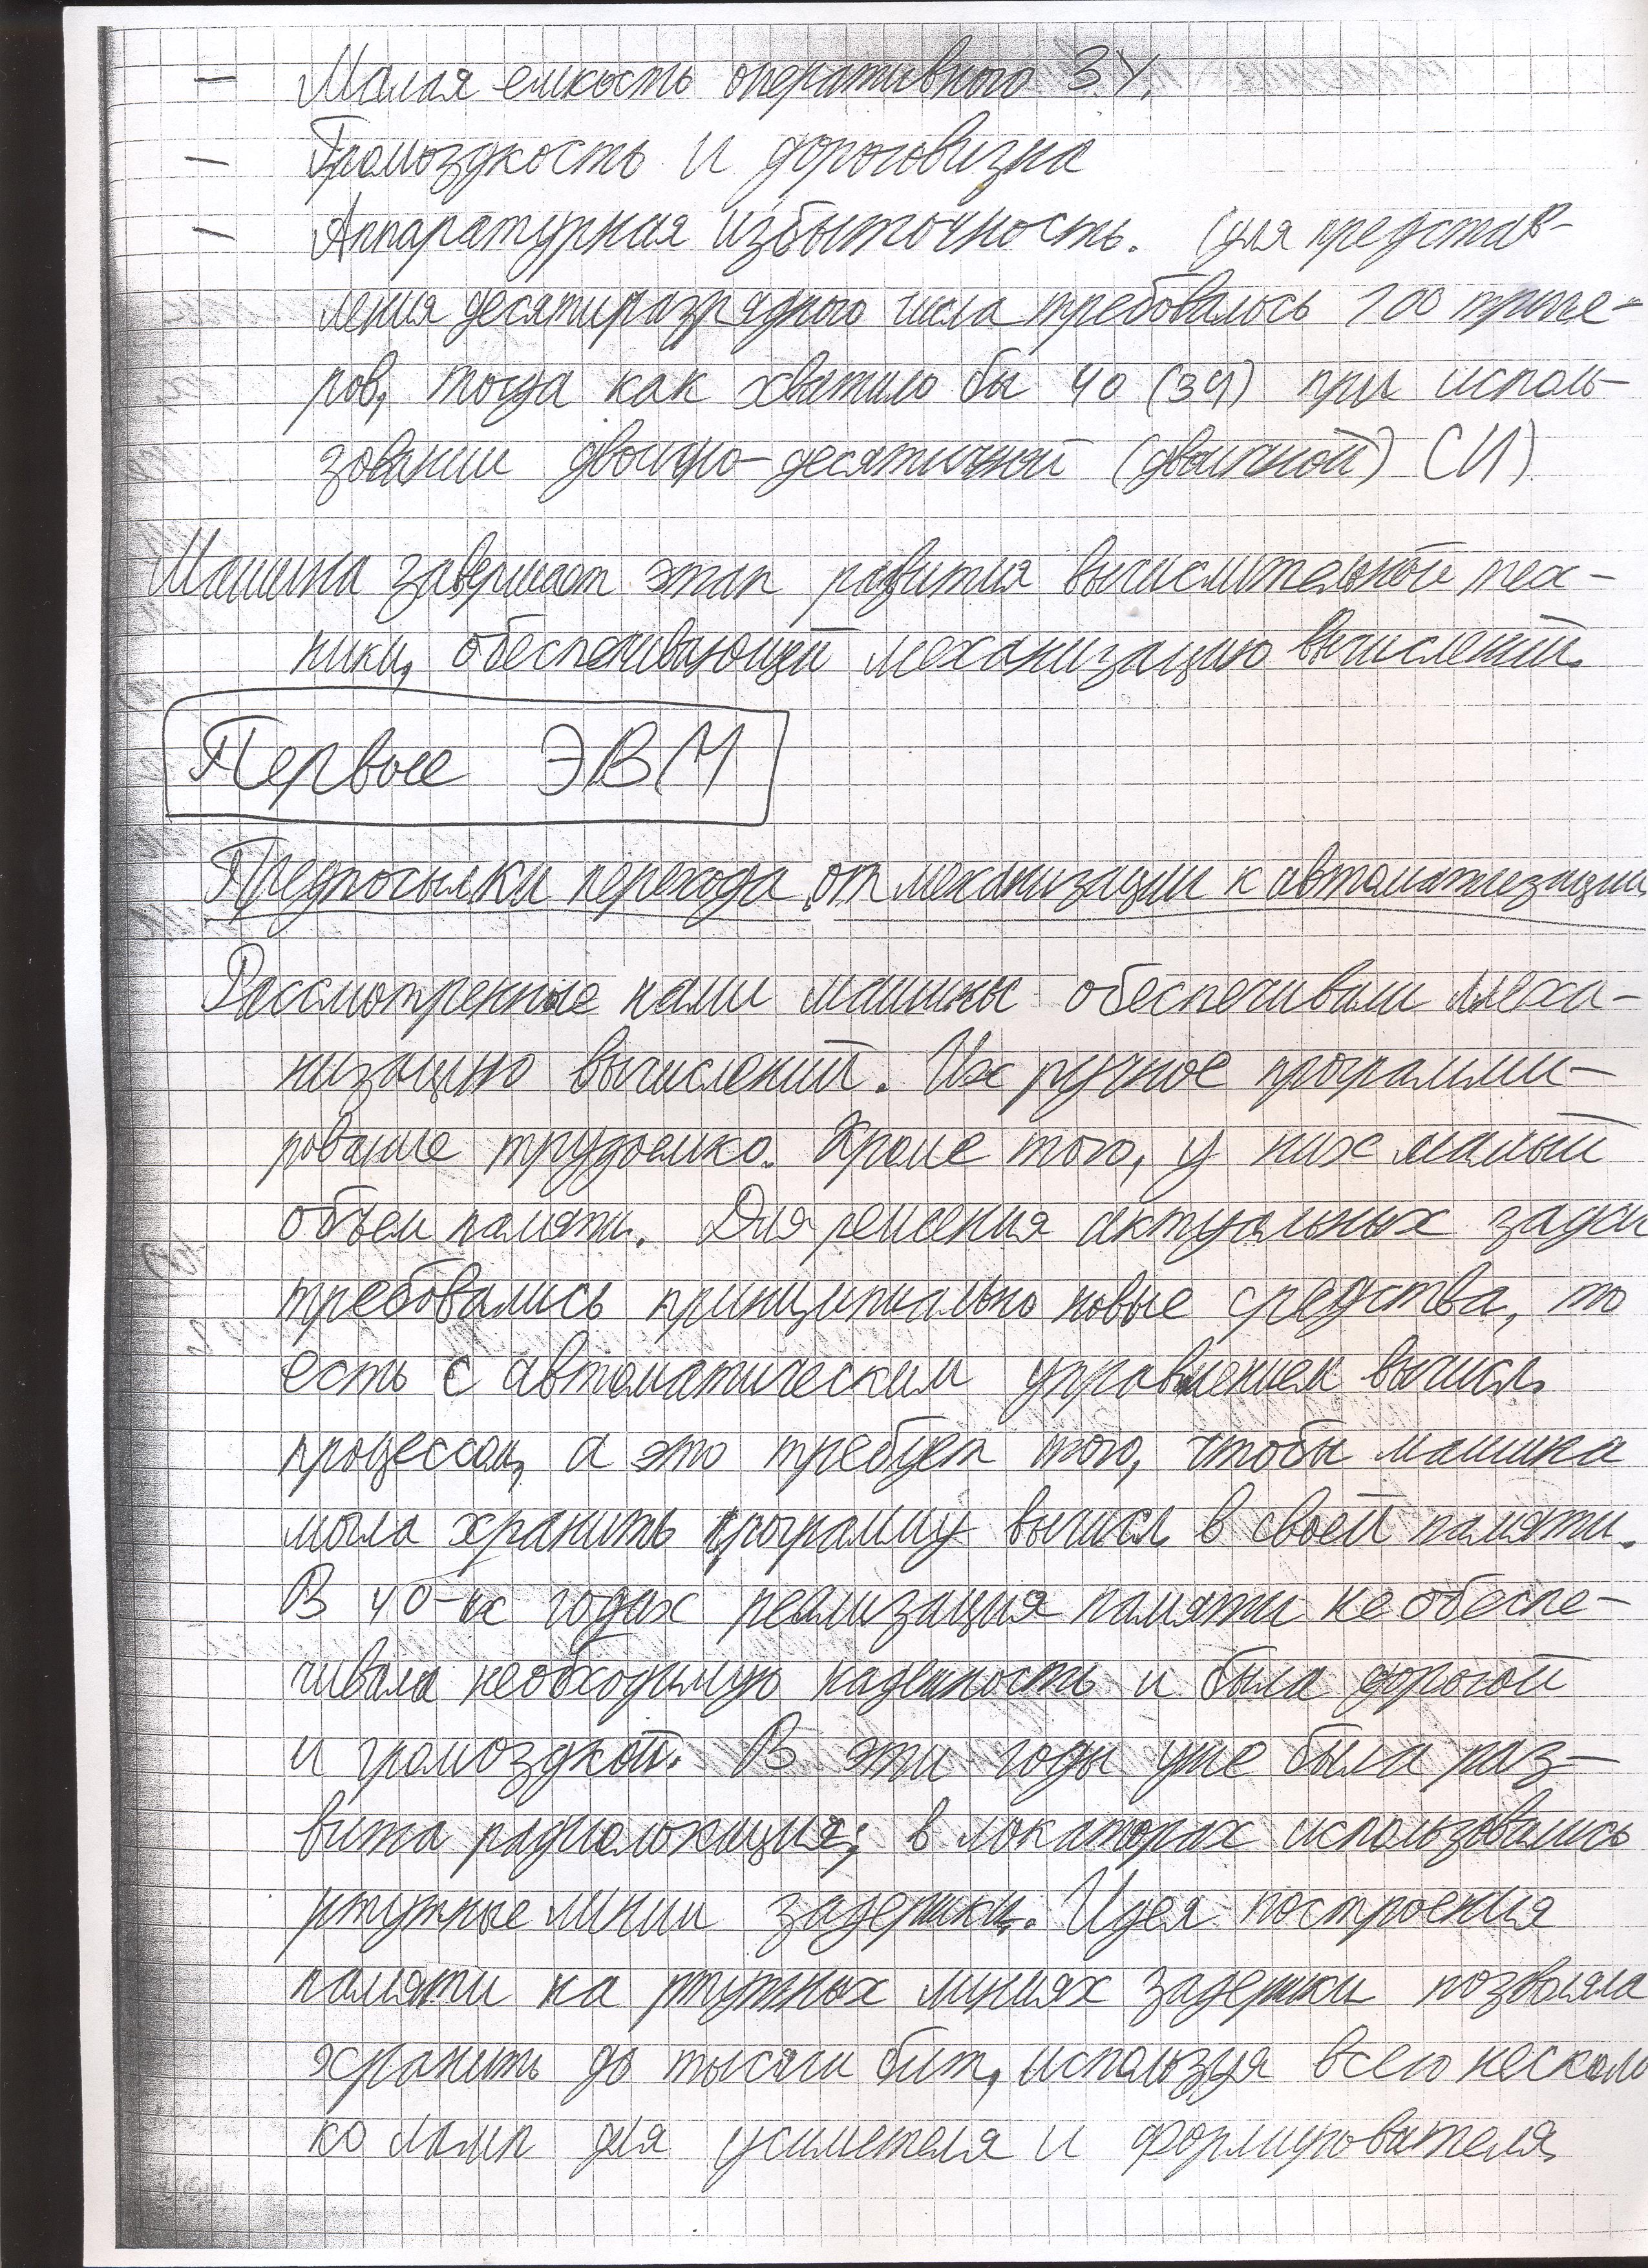 — Малая емкость оперативного ЗУ.
— Громоздкость и дороговизна
— Аппаратурная избыточность. (для представ-
ления десятиразрядного числа требовалось 100 тригге-
ров, тогда как хватило бы 40 (34) при исполь-
зовании двоично-десятичной (двоичной) СИ)
Машина завершает этап развития вычислительной тех-
ники, обеспечивающей механизацию вычислений.
Первые ЭВМ
Предпосылки перехода от механизации к автоматизации
Рассмотренные нами машины обеспечивали меха-
низацию вычислений. Их ручное программи-
рование трудоемко. Кроме того, у них малый
объем памяти. Для решения актуальных задач
требовались принципиально новые средства, то
есть с автоматическим управлением вычисл.
процессом, а это требует того, чтобы машина
могла хранить программу вычисл. в своей памяти.
В 40-их годах реализация памяти не обеспе-
чивала необходимую надежность и была дорогой
и громоздкой. В эти годы уже была раз-
вита радиолокация; в локаторах использовались
ртутные линии задержки. Идея построения
памяти на ртутных линиях задержки позволяла
хранить до тысячи бит, используя всего несколь
ко ламп для усилителя и формирователя.